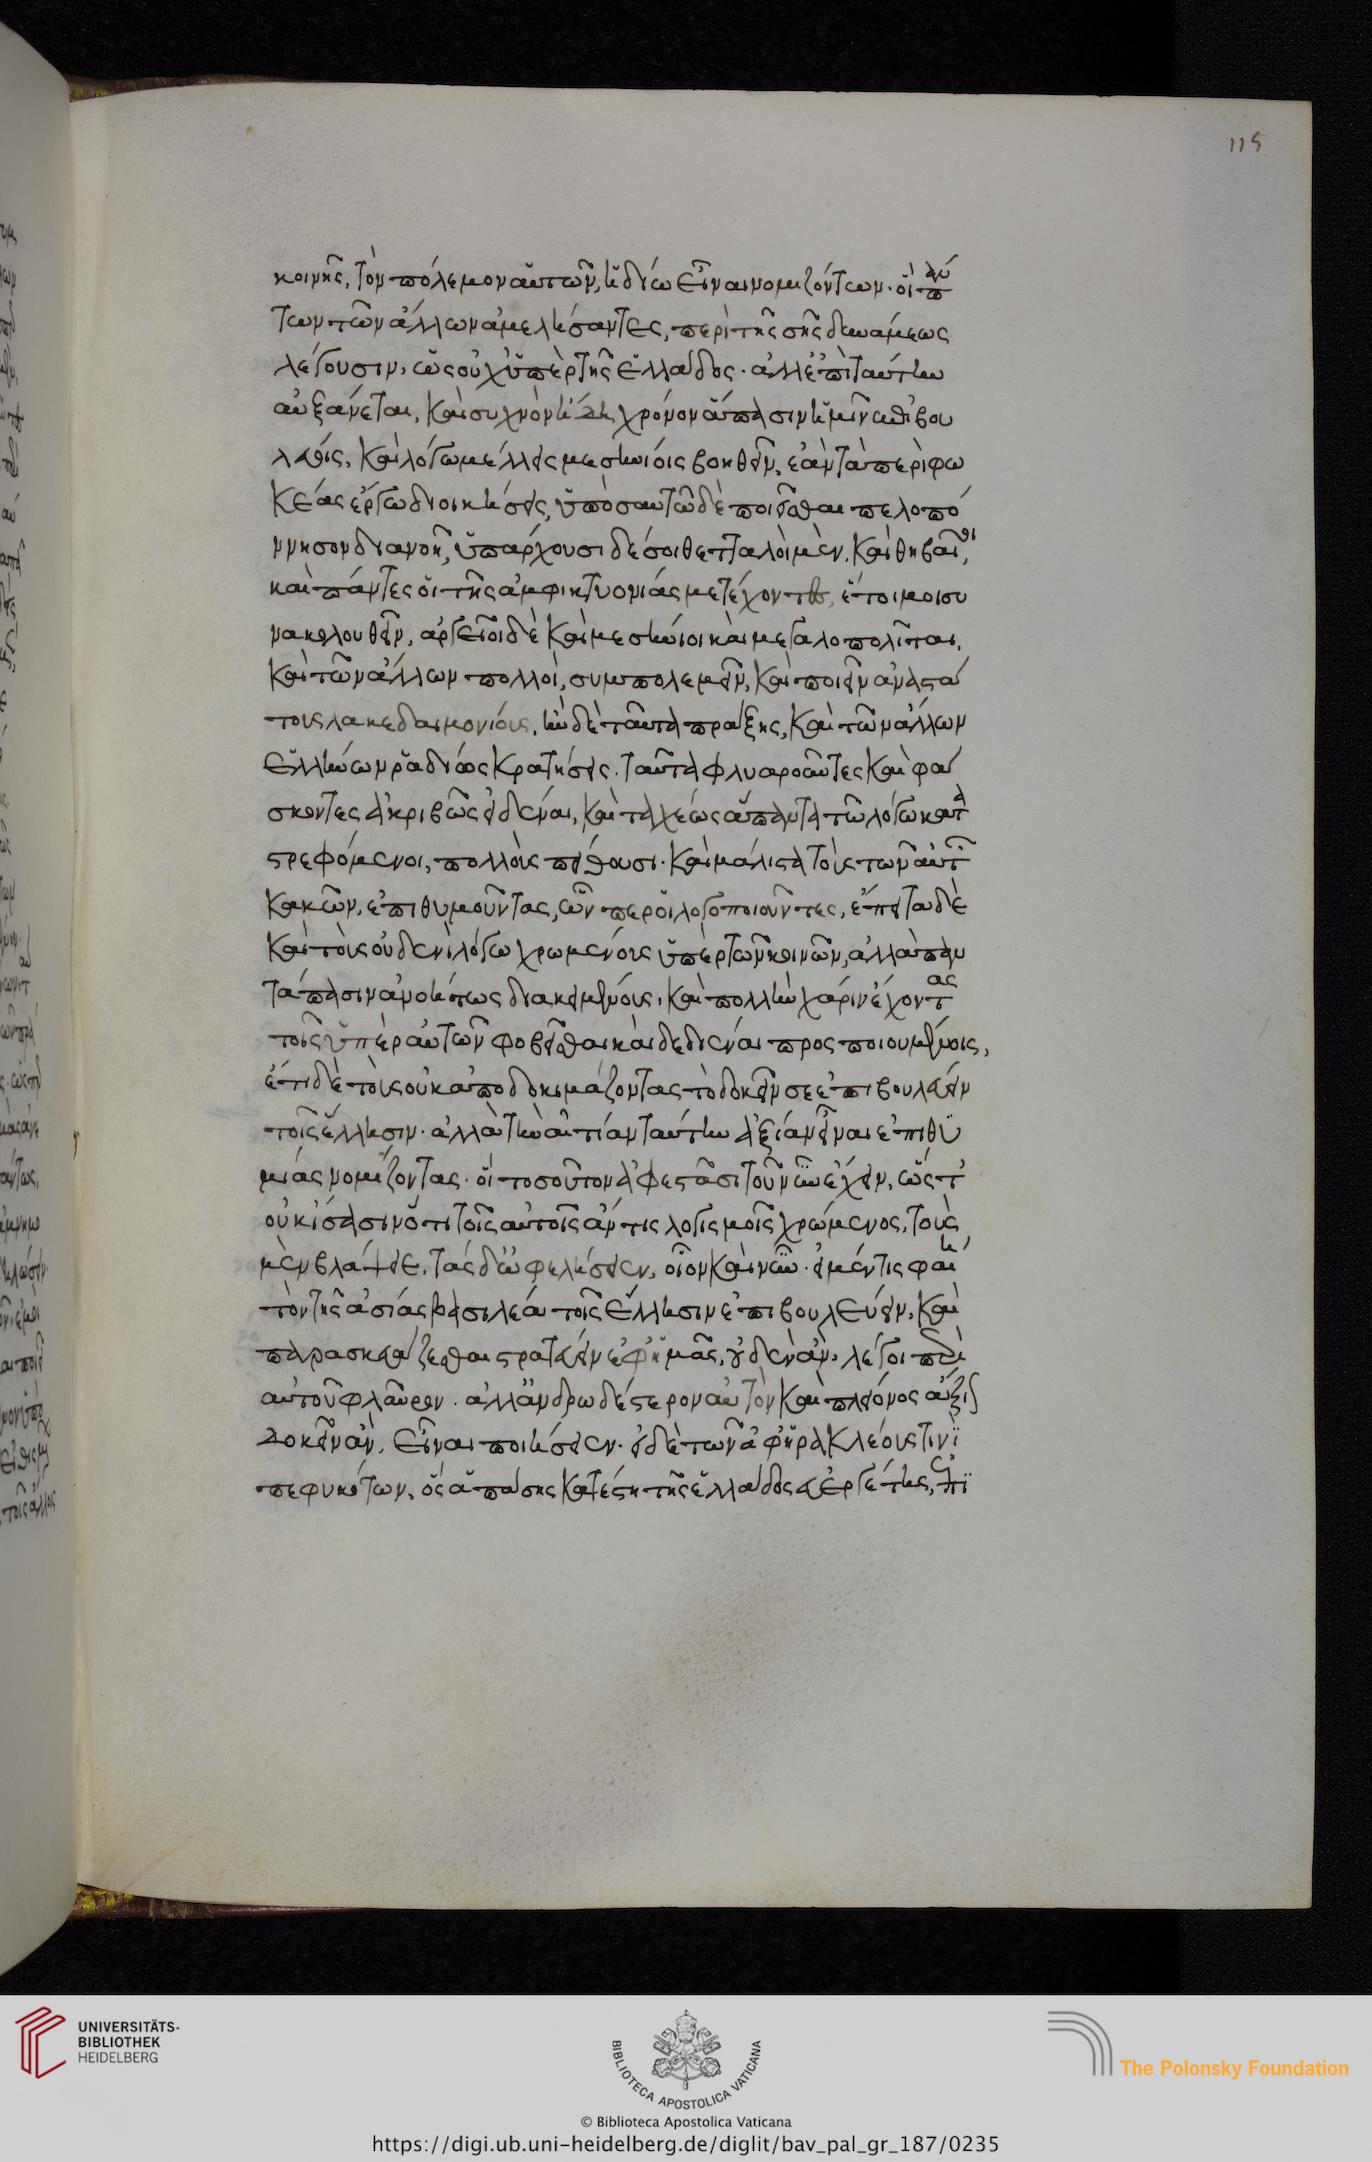 κοινῆς, τὸν πόλεμον αὑτῶν, ἡδίω εἶναι νομιζόντων· οἳ πάν
των τῶν ἄλλων ἀμελήσαντες, περὶ τῆς σῆς δυνάμεως
λέγουσιν, ὡς οὐχ ὑπὲρ τῆς Ἑλλάδος· ἀλλ' ἐπὶ ταύτην
αὐξάνεται, καὶ συχνὸν ἤδη χρόνον ἅπασιν ἡμῖν ἐπιβου
λεύεις, καὶ λόγω μέλλεις μεσηνίοις βοηθεῖν, ἐὰν τὰ περὶ φω
κέας ἔργω διοικήσεις, ὑπὸ σαυτῶ δὲ ποιεῖσθαι πελοπό
ννησον διανοῆ, ὑπάρχουσι δέ σοι θετταλοὶ μὲν, καὶ θηβαῖοι,
καὶ πάντες οἱ τῆς ἀμφικτυονίας μετέχοντες, ἕτοιμοι συ
νακολουθεῖν, ἀργεῖοι δὲ καὶ μεσήνιοι καὶ μεγαλοπολῖται,
καὶ τῶν ἄλλων πολλοὶ, συμπολεμεῖν, καὶ ποιεῖν ἀναστά
τους λακεδαιμονίους, ἢν δὲ ταῦτα πράξης, καὶ τῶν ἄλλων
Ἑλλήνων ῥαδίως κρατήσεις. ταῦτα φλυαροῦντες καὶ φά
σκοντες ἀκριβῶς εἰδέναι, καὶ ταχέως ἅπαντα τῶ λόγω κατα
στρεφόμενοι, πολλοὺς πείθουσι. καὶ μάλιστα τοὺς τῶν αὐτῶν
κακῶν, ἐπιθυμοῦντας, ὧνπερ οἱ λογοποιοῦντες, ἔπειτα δὲ
καὶ τοὺς οὐδενὶ λόγω χρωμένους ὑπὲρ τῶν κοινῶν, ἀλλὰ παν
τάπασιν ἀνοήτως διακειμένους, καὶ πολλὴν χάριν ἔχοντας
τοῖς ὑπὲρ αὑτῶν φοβεῖσθαι καὶ δεδιέναι προσποιουμένοις,
ἔτι δὲ τοὺς οὐκ ἀποδοκιμάζοντας τὸ δοκεῖν σε ἐπιβουλεύειν
τοῖς ἕλλησιν· ἀλλὰ τὴν αἰτίαν ταύτην ἀξίαν εἶναι ἐπιθυ
μίας νομίζοντας. οἳ τοσοῦτον ἀφεστᾶσι τοῦ νοῦν ἔχειν, ὥστ'
οὐκ ἴσασιν ὅτι τοῖς αὐτοῖς ἄν τις λογισμοῖς χρώμενος, τοὺς
μὲν βλάψειε, τοὺς δ' ὠφελήσειεν, οἷον καὶ νῦν. εἰ μέν τις φαίη
τὸν τῆς ἀσίας βασιλέα τοῖς Ἕλλησιν ἐπιβουλεύειν, καὶ
παρασκευάζεσθαι στρατεύειν ἐφ' ἡμᾶς, οὐδὲν ἂν, λέγοι περὶ
αὐτοῦ φλαῦρον. ἀλλ' ἀνδρωδέστερον αὐτὸν καὶ πλείονος ἄξιον
δοκεῖν ἂν, εἶναι ποιήσειεν. εἰ δὲ τῶν ἀφ' ἡρακλέους τινὶ
πεφυκότων, ὃς ἁπάσης κατέστη τῆς ἑλλάδος εὐεργέτης, ἐπι
115
UNIVERSITÄTS-
BIBLIOTHEK
HEIDELBERG
BIBLIOTECA APOSTOLICA VATICANA
The Polonsky Foundation
© Biblioteca Apostolica Vaticana
https://digi.ub.uni-heidelberg.de/diglit/bav_pal_gr_187/0235